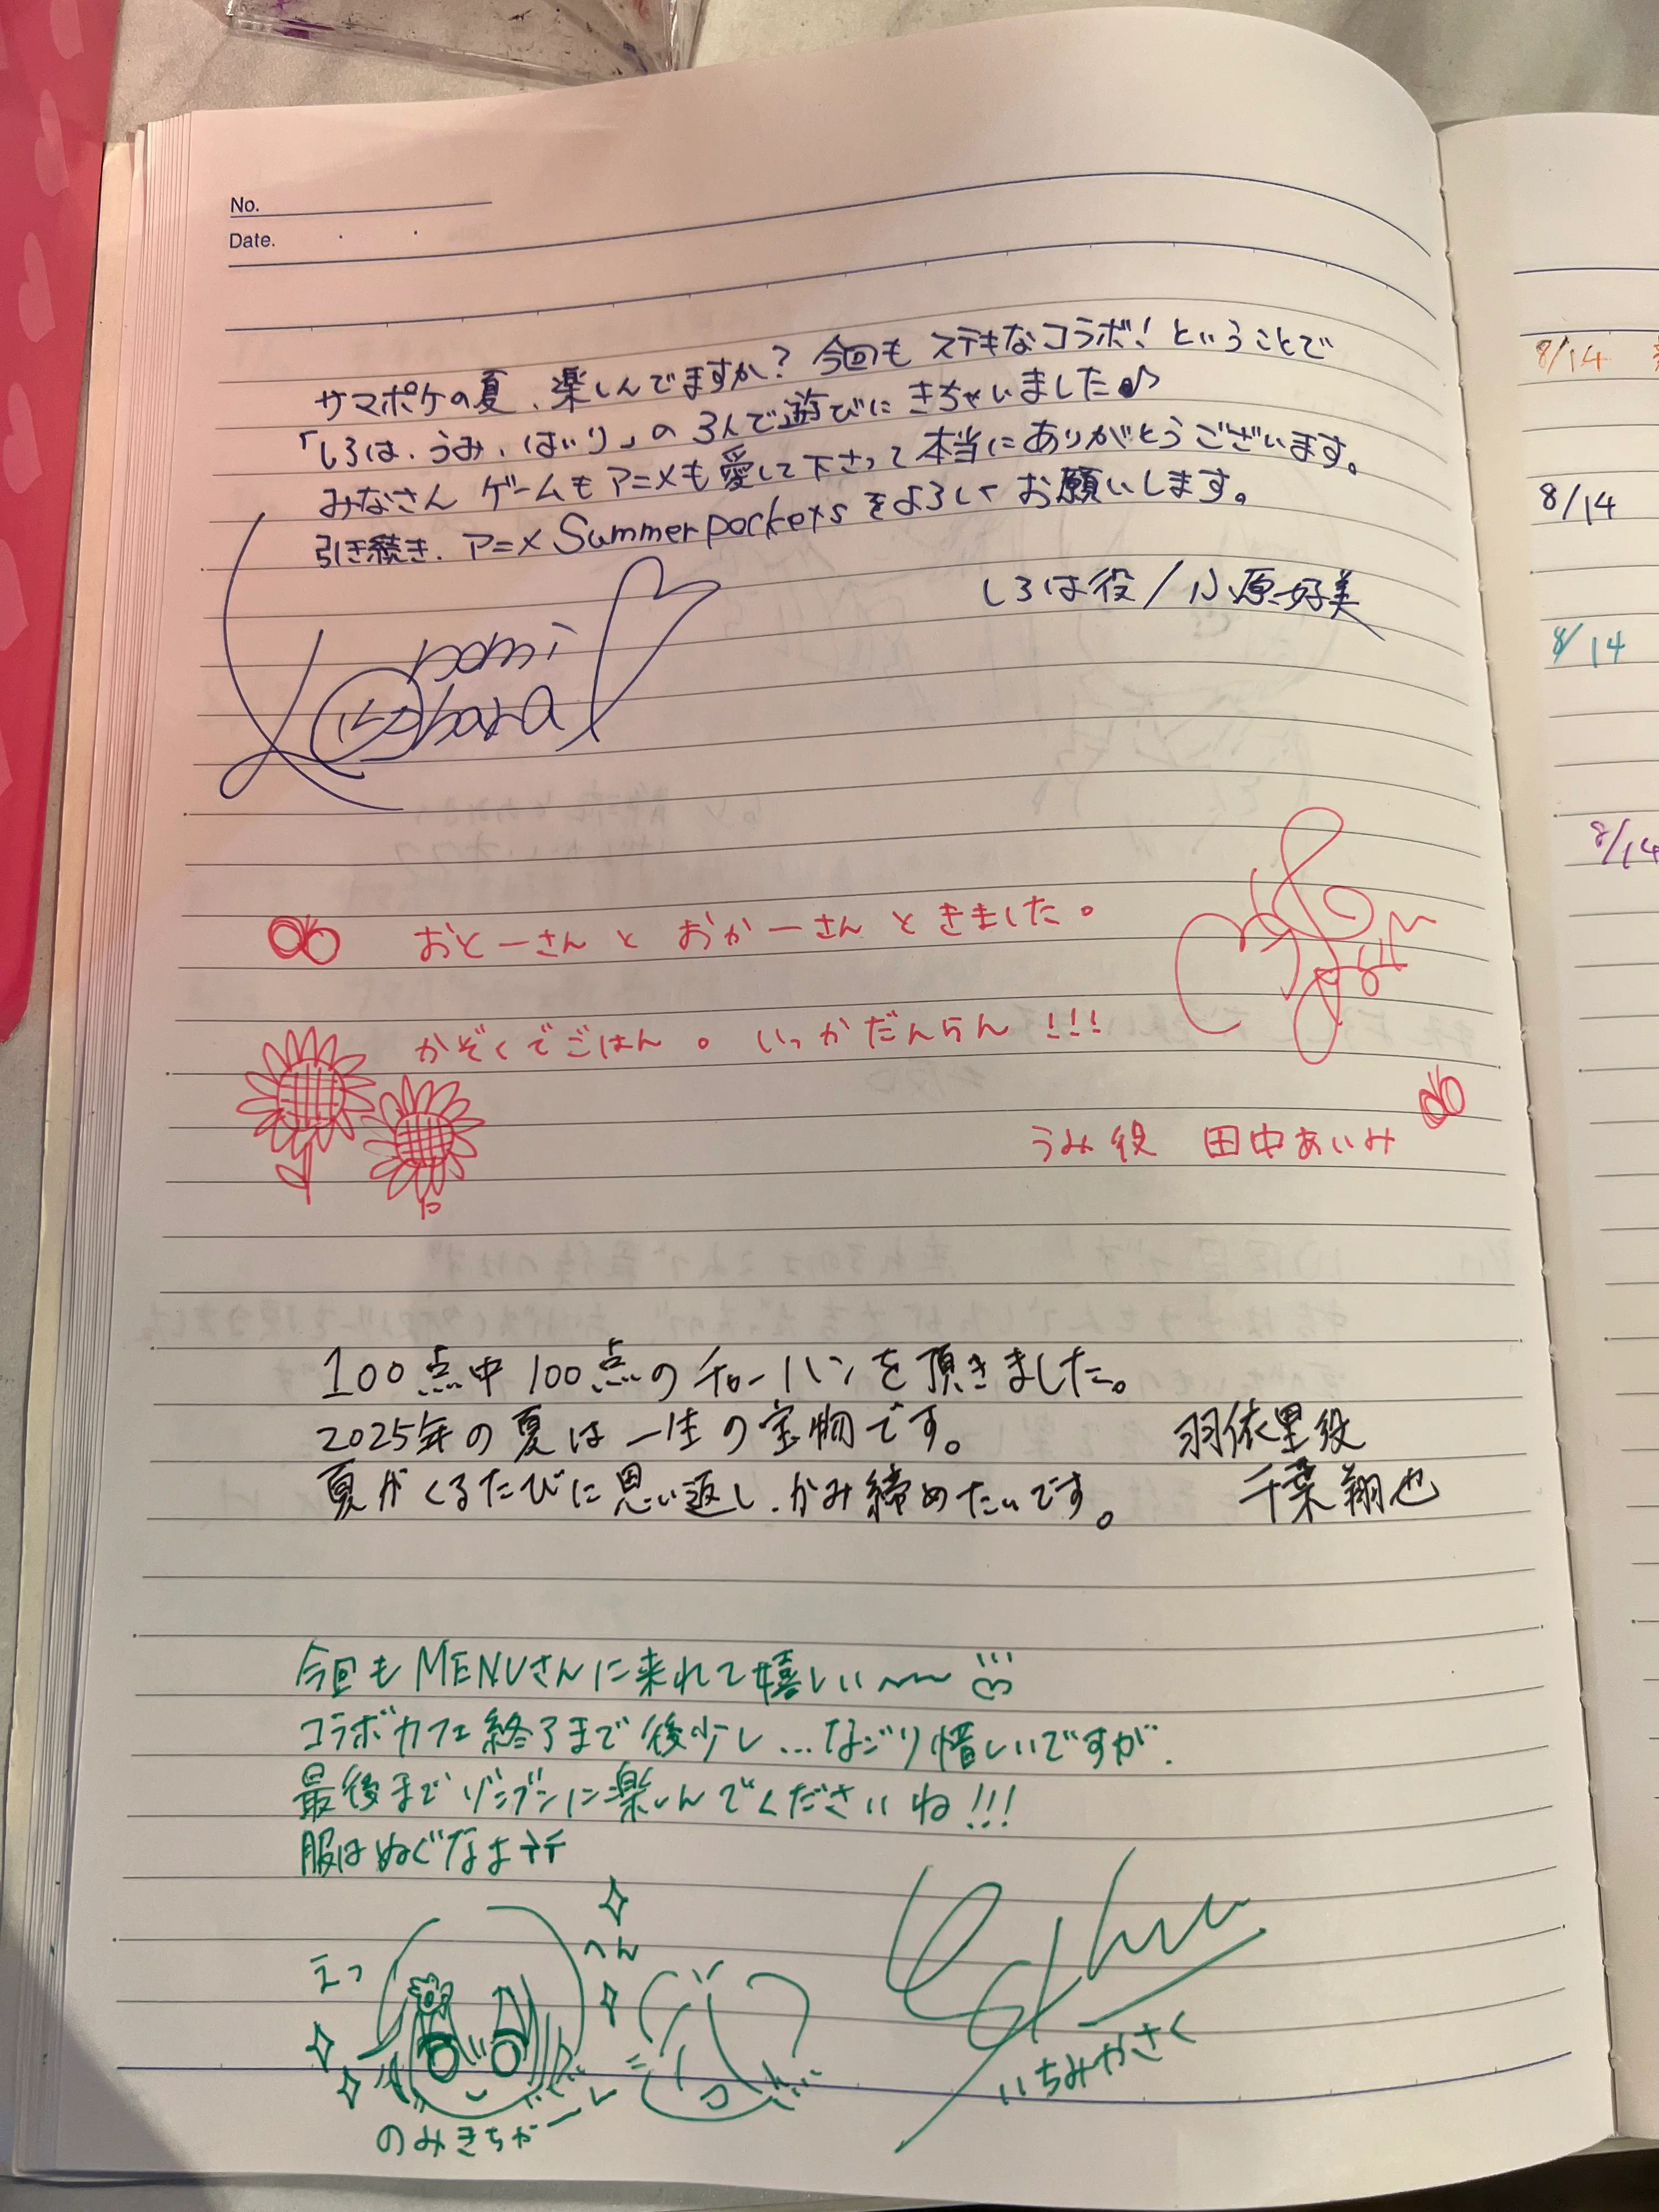 No.
Date.
サマポケの夏、楽しんでますか？今回もステキなコラボ！ということで
「しろは、うみ、はいり」の3人で遊びにきちゃいました♪
みなさん ゲームもアニメも愛して下さって本当にありがとうございます。
引き続き、アニメ Summer pockets をよろしくお願いします。
しろは役/小原好美
Konomi
Kohara
おとーさんと おかーさんと きました。
かぞくでごはん。いっかだんらん!!!
うみ役 田中あいみ
100点中100点のチャーハンを頂きました。
2025年の夏は一生の宝物です。
羽依里役
夏がくるたびに思い返し、かみ締めたいです。
千葉翔也
今回もMENUさんに来れて嬉しい〜〜
コラボカフェ終了まで後少し...なごり惜しいですが、
最後までゾンブンに楽しんでくださいね!!!
服はぬぐなよ
えっ
へん
のみきちがーし
いちみやさく
8/14
8/14
8/14
8/14